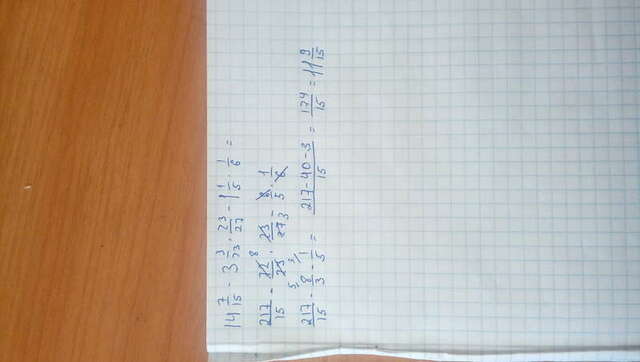 14 7/15 - 3 3/23 · 23/27 - 1 1/5 · 1/6 =
217/15 - 72/23 8 · 23/27 3 - 6/5 · 1/6
217/15 - 5 8/3 - 3 1/5 = 217-40-3/15 = 174/15 = 11 9/15